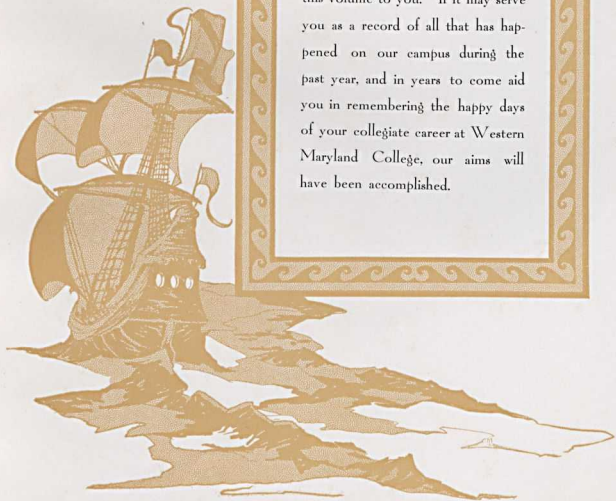 this volume to you. If it may serve
you as a record of all that has hap-
pened on our campus during the
past year, and in years to come aid
you in remembering the happy days
of your collegiate career at Western
Maryland College, our aims will
have been accomplished.